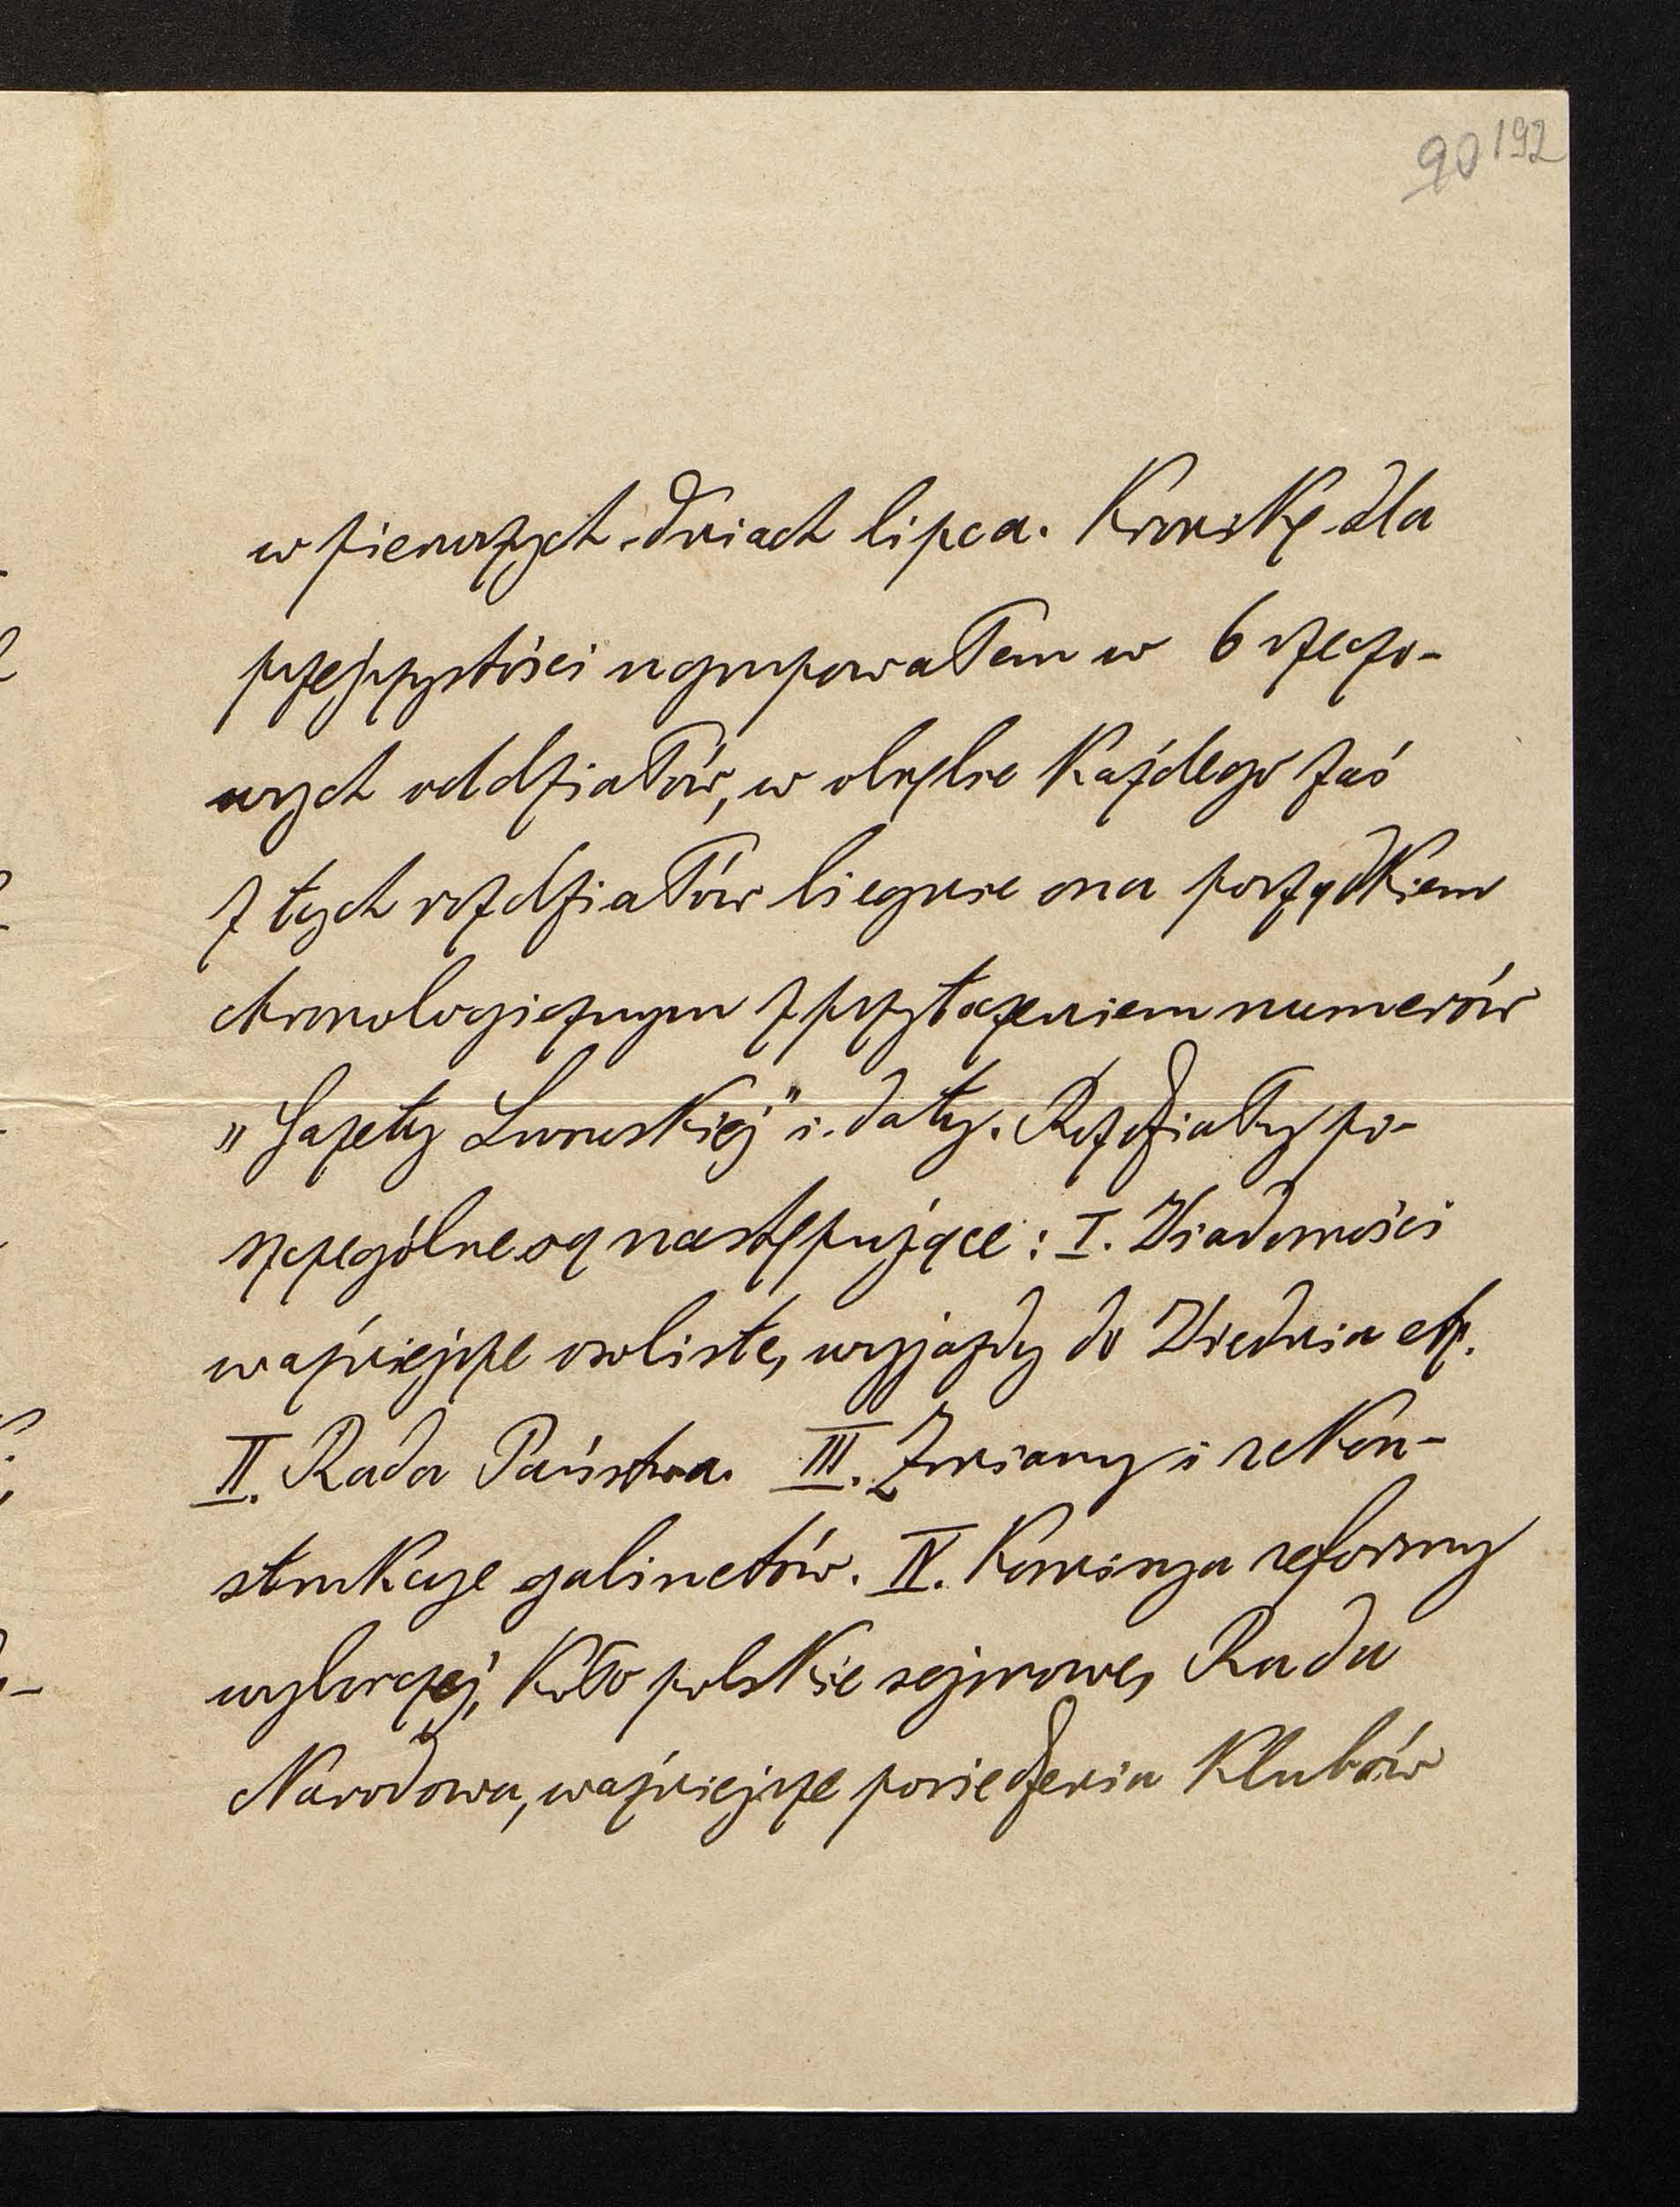 90 192
w pierwszych dniach lipca. Kronikę dla
przejrzystości ugrupowałem w 6 rzeczo-
wych oddziałów, w obrębie każdego zaś
z tych rozdziałów biegnie ona porządkiem
chronologicznym z przytaczeniem numerów
„Gazety Lwowskiej" i daty. Rozdziały po-
szczególne są następujące: I. Wiadomości
ważniejsze osobiste, wyjazdy do Wiednia etc.
II. Rada Państwa. III. Zmiany i rekon-
strukcye gabinetów. IV. Komisya reformy
wyborczej, Koło polskie sejmowe, Rada
Narodowa, ważniejsze posiedzenia klubów